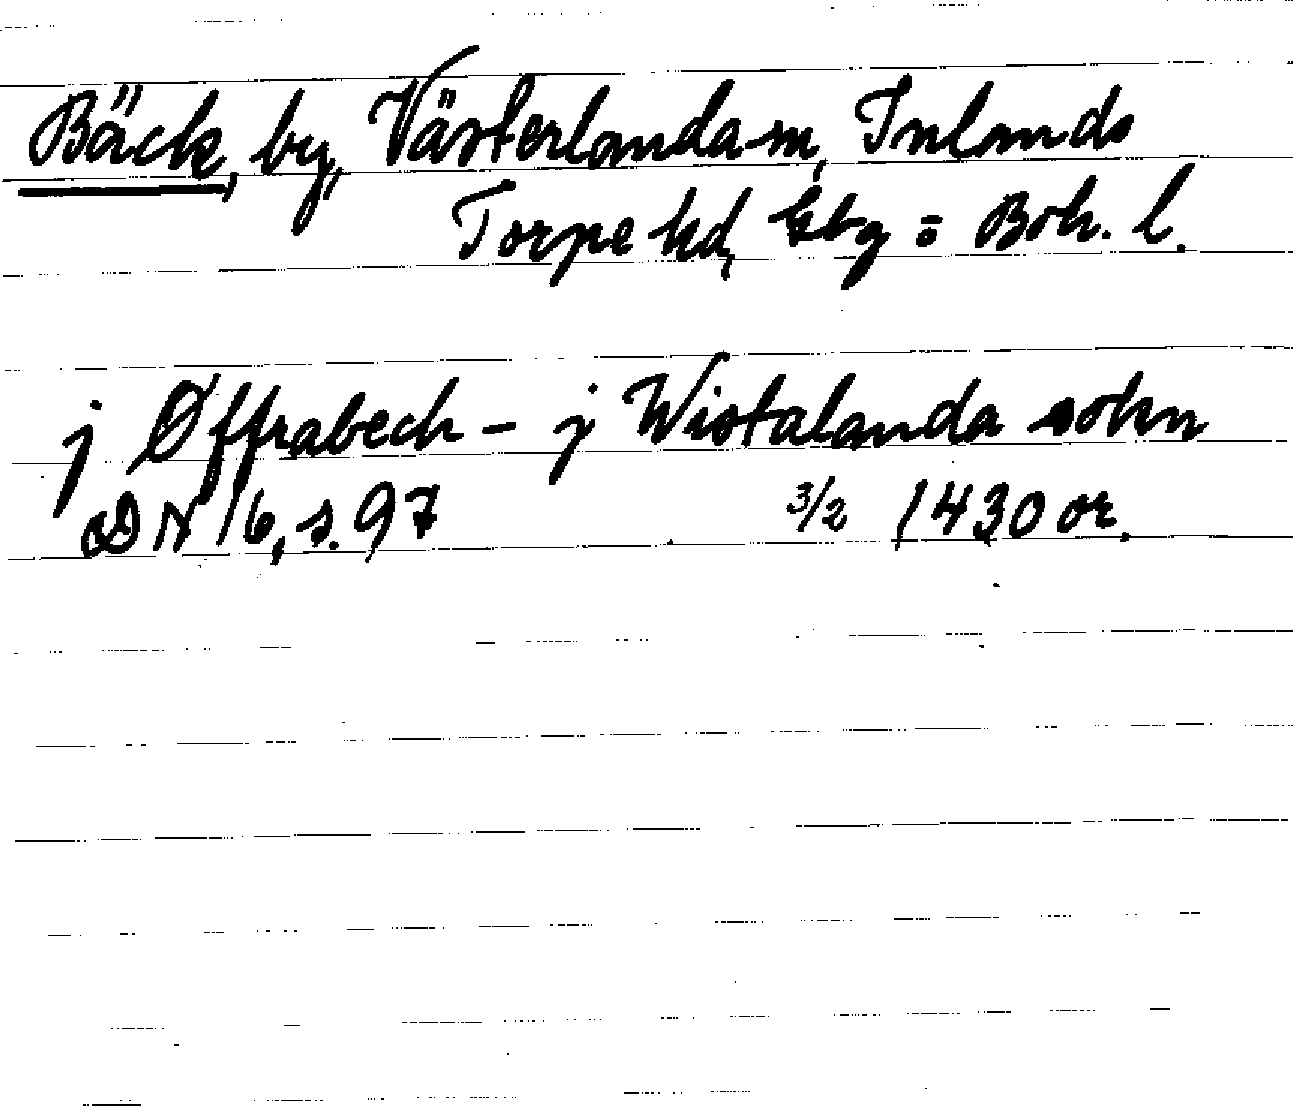 Bäck, by, Västerlanda sn, Inlands
Torpe hd, Gbg o Boh. l.
j Øffrabech - j Wistalanda sokn
DN 16, s. 97 3/2 1430 or.